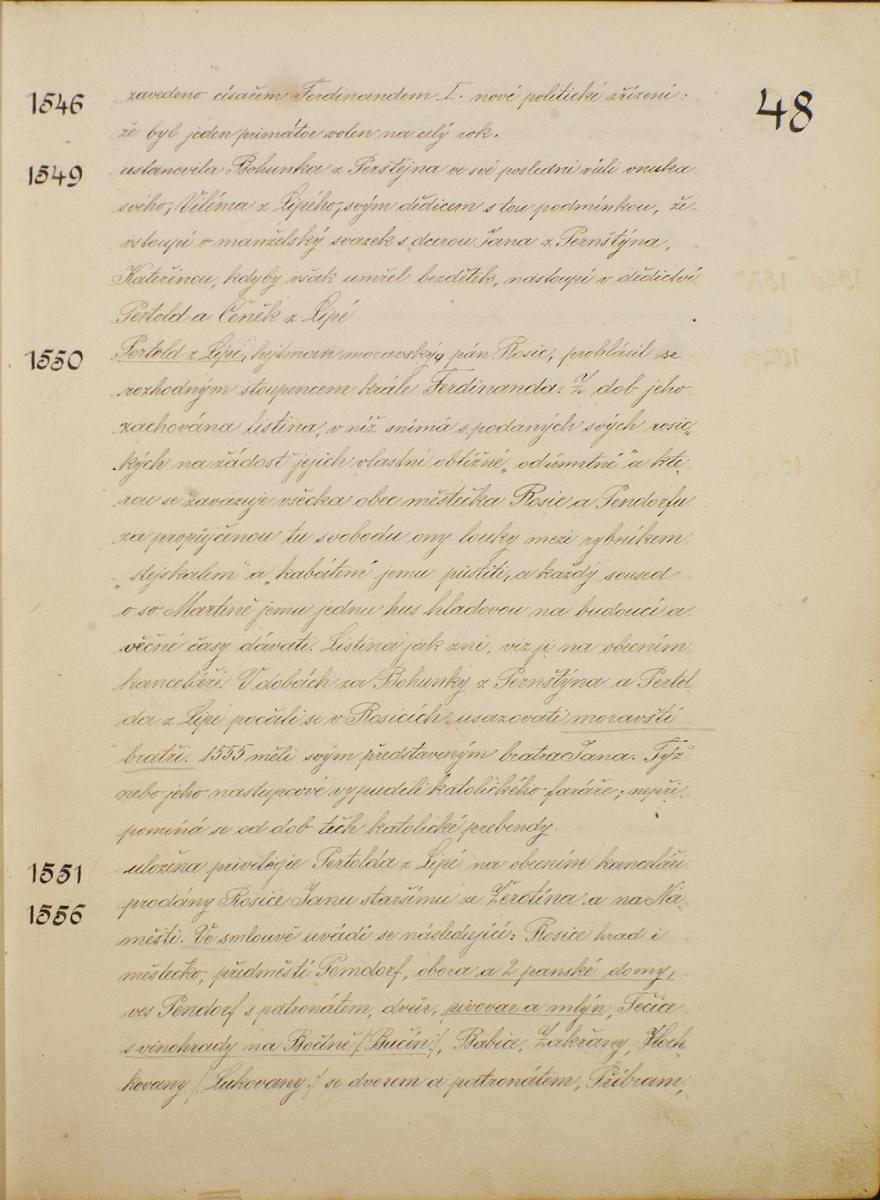 48
1546 zavedeno císařem Ferdinandem I. nové politické zřízení:
že byl jeden primátor volen na celý rok.
1549 ustanovila Bohunka z Perštejna ve své poslední vůli vnuka
svého, Viléma z Lipého, svým dědicem s tou podmínkou, že
vstoupí v manželský svazek s dcerou Jana z Pernštýna,
Kateřinou, kdyby však umřel bezdětek, nastoupí v dědictví
Pertold a Čeněk z Lipé
1550 Pertold z Lipé, hejtman moravský, pán Rosic, prohlásil se
rozhodným stoupencem krále Ferdinanda. Z dob jeho
zachována listina, v níž snímá s podaných svých rosic„
kých na žádost jejich vlastní obtížné „odúmrtné" a kte„
rou se zavazuje všecka obec městečka Rosic a Pendorfu
za propůjčenou tu svobodu ony louky mezi rybníkem
„stejskalem" a „kabátem" jemu pustiti, a každý soused
o sv. Martině jemu jednu hus hladovou na budoucí a
věčné časy dávati. Listina jak zní, viz ji na obecním
kanceláři. V dobách za Bohunky z Pernštýna a Pertol„
da z Lipé počali se v Rosicích usazovati moravští
bratři. 1555 měli svým představeným bratra Jana. Týž
nebo jeho nastupcové vypudili katolického faráře; nepři„
pomíná se od dob těch katolické prebendy.
1551 uložena privilegie Pertolda z Lipé na obecním kanceláři
1556 prodány Rosice Janu staršímu ze Žerotína a na Ná„
měšti. Ve smlouvě uvádí se následující: Rosice hrad i
městečko, předměstí Pomdorf, obora a 2 panské domy,
ves Pendorf s patronátem, dvůr, pivovar a mlýn, Tečice
s vinohrady na Bočíně /:Bučín:/, Babice, Zakřany, Hloch„
kovany /:Lukovany:/ se dvorem a patronátem, Příbram,